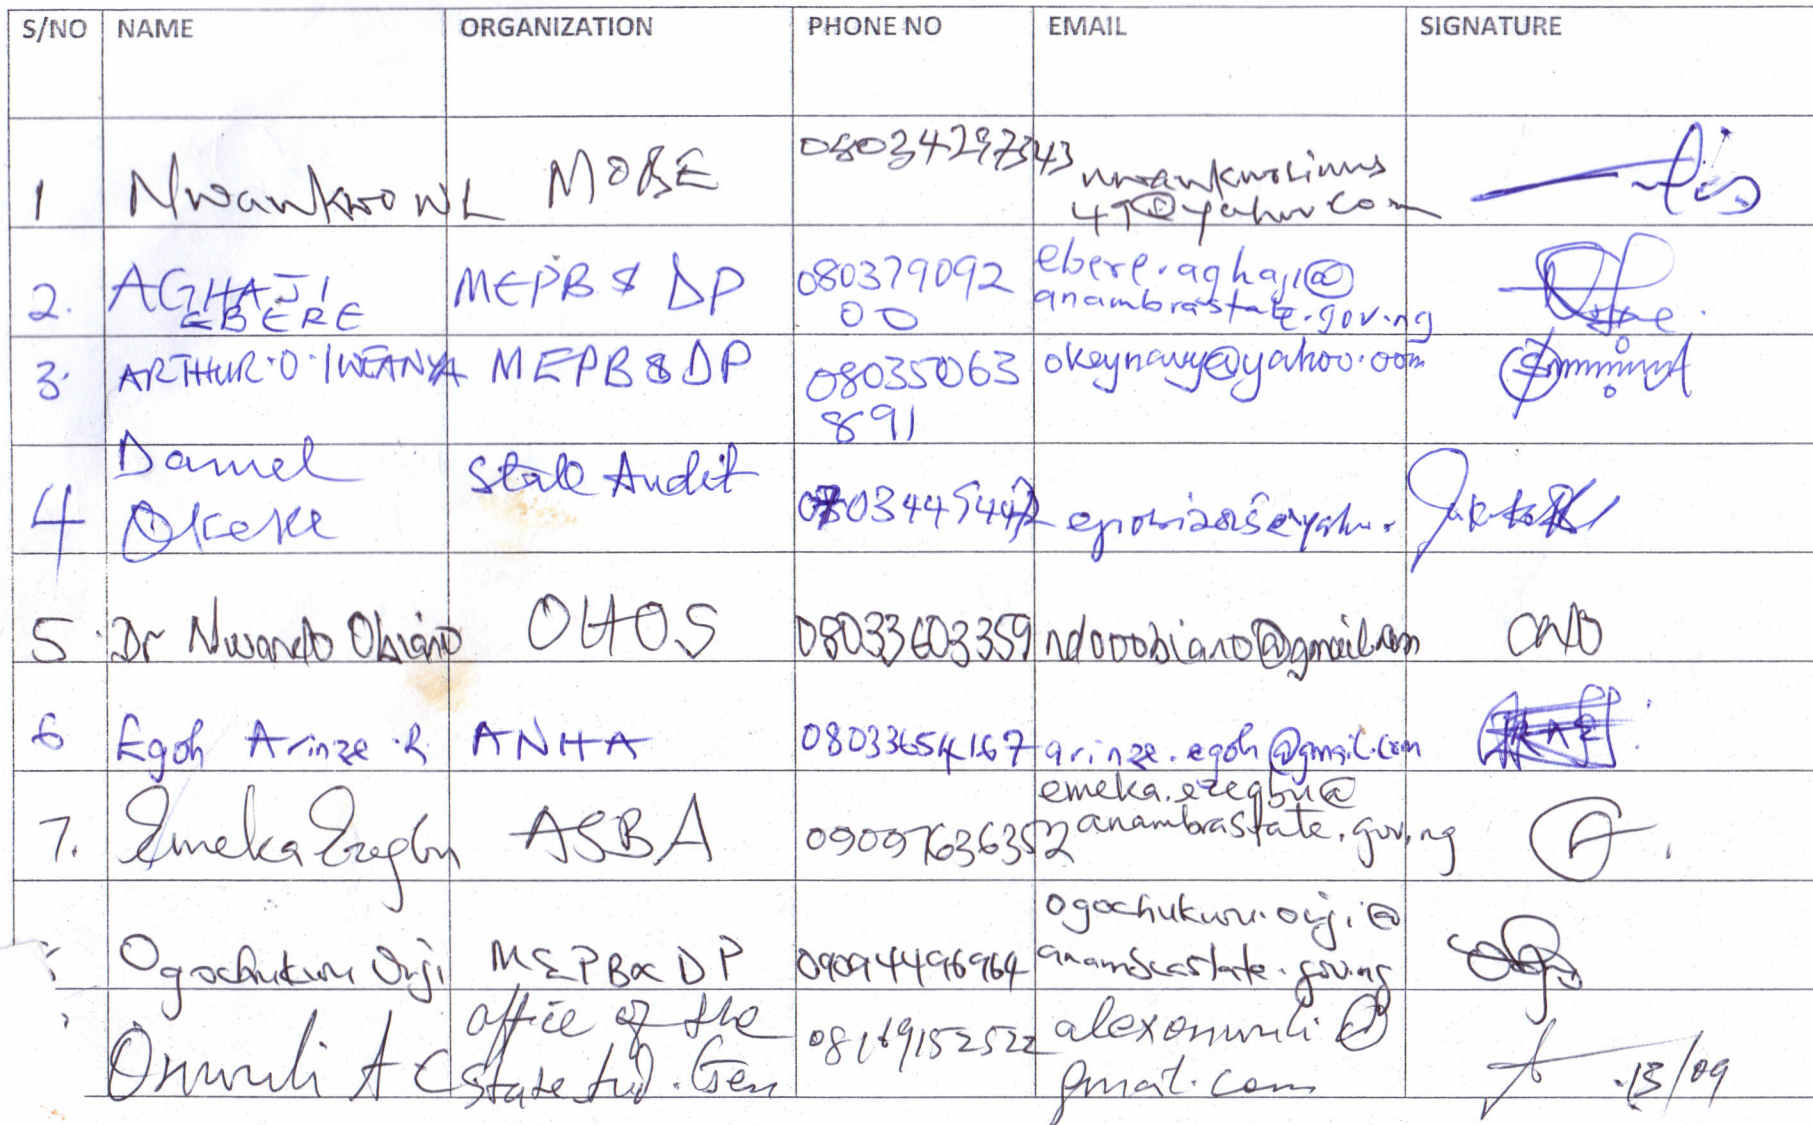 S/NO NAME ORGANIZATION PHONE NO EMAIL SIGNATURE
1 Nwankwo N L MOBE 08034297343 nwankwolinus
49@yahoo com
2. AGHAJI EBERE MEPB & DP 080379092
00 ebere.aghaji@
anambrastate.gov.ng
3. ARTHUR.O.IWEANYA MEPB & DP 08035063
891 okeynavy@yahoo.com
4 Daniel
Okeke State Audit
5. Dr Nwando Obiano OHOS 08033603359 ndooobiano@gmail.com
6 Egoh Arinze .R ANHA 08033654167 arinze.egoh@gmail.com
7. Emeka Ezegbu ASBA 09097636352 emeka.ezegbu@
anambrastate.gov.ng
Ogochukwu Orji MEPB & DP 09094496964 ogochukwu.orji@
anambrastate.gov.ng
Onwuli A C office of the
State Aud. Gen 08169152522 alexonwuli@
gmail.com 13/09